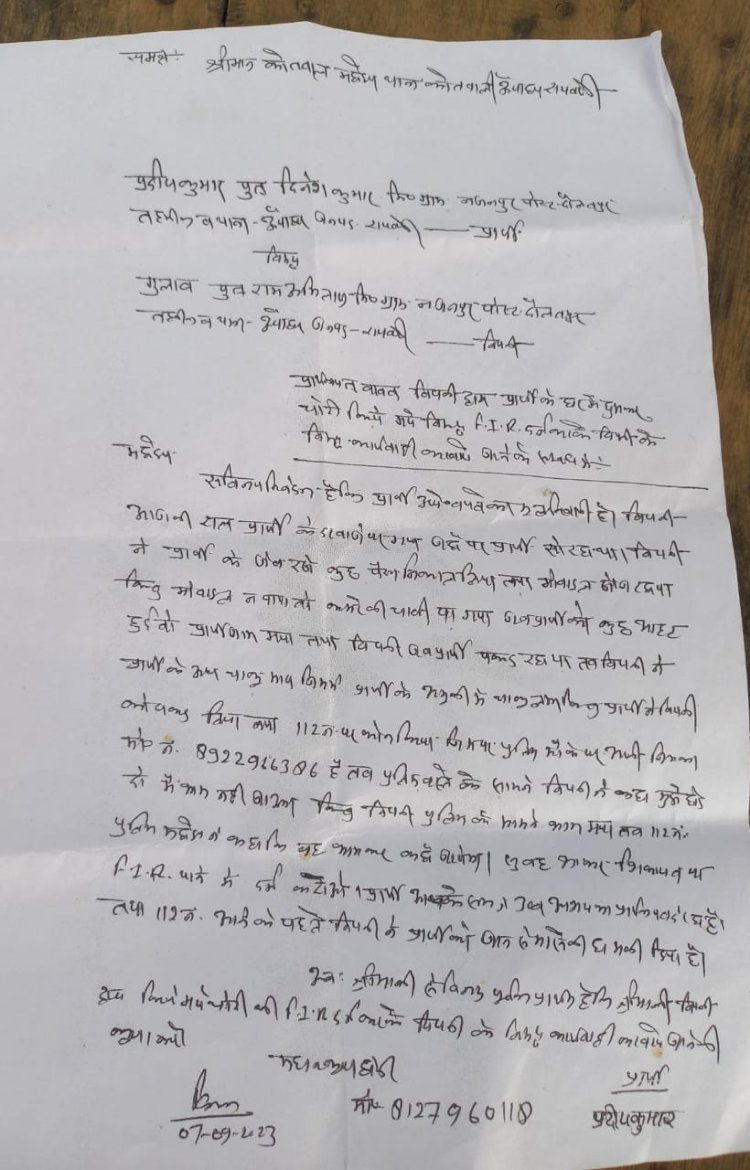 समक्ष: श्रीमान कोतवाल महोदय थाना कोतवाली ऊँचाहार रायबरेली
प्रदीपकुमार पुत्र दिनेश कुमार नि० ग्राम पोस्ट दौलतपुर
तहसील व थाना - ऊँचाहार जनपद - रायबरेली — प्रार्थी
बिरुद्ध
गुलाब पुत्र राम नि० ग्राम पोस्ट दौलतपुर
तहसील व थाना - ऊँचाहार जनपद - रायबरेली — विपक्षी
प्रार्थनापत्र बावत विपक्षी द्वारा प्रार्थी के घर में घुसकर
चोरी किये गये बिरुद्ध F.I.R. दर्ज करके विपक्षी के
बिरुद्ध कार्यवाही करवाये जाने के सम्बन्ध में :
महोदय
सविनय निवेदन है कि प्रार्थी उपरोक्त पते का निवासी है। विपक्षी
आज की रात प्रार्थी के दरवाजे पर गया जहाँ पर प्रार्थी सो रहा था। विपक्षी
ने प्रार्थी के जेब रखे कुछ पैसा निकाल लिया तथा मोबाइल खोज रहा था
किन्तु मोबाइल न पाया तो कमरे की चाबी पा गया जब प्रार्थी को कुछ आहट
हुई तो प्रार्थी जाग गया तथा विपक्षी को जब प्रार्थी पकड़ रहा था तब विपक्षी ने
प्रार्थी के ऊपर चाकू मारा जिससे प्रार्थी के में चाकू लगा किन्तु प्रार्थी ने विपक्षी
को पकड़ लिया तथा 112 नं. पर फोन किया जिसपर पुलिस मौके पर आयी जिसका
मो० नं. 8922966386 है तब पुलिस वालों के सामने विपक्षी ने कहा मुझे छोड़
दो मैं भाग नहीं जाऊंगा किन्तु विपक्षी पुलिस के सामने भाग गया तब 112 नं.
पुलिस महोदय ने कहा कि यह भागकर कहाँ जायेगा। सुबह आकर शिकायत पत्र
F.I.R. थाने में दर्ज करा देना। प्रार्थी आपके
तथा 112 नं. आने के पहले विपक्षी ने प्रार्थी को जान से मारने की धमकी दिया है।
अतः श्रीमान जी से विनम्र है कि श्रीमान जी विपक्षी
द्वारा किये गये चोरी की F.I.R दर्ज करके विपक्षी के बिरुद्ध कार्यवाही करवाये जाने की
कृपा करें
महान कृपा होगी
प्रार्थी
07-09-2023
मो० 8127960118
प्रदीपकुमार